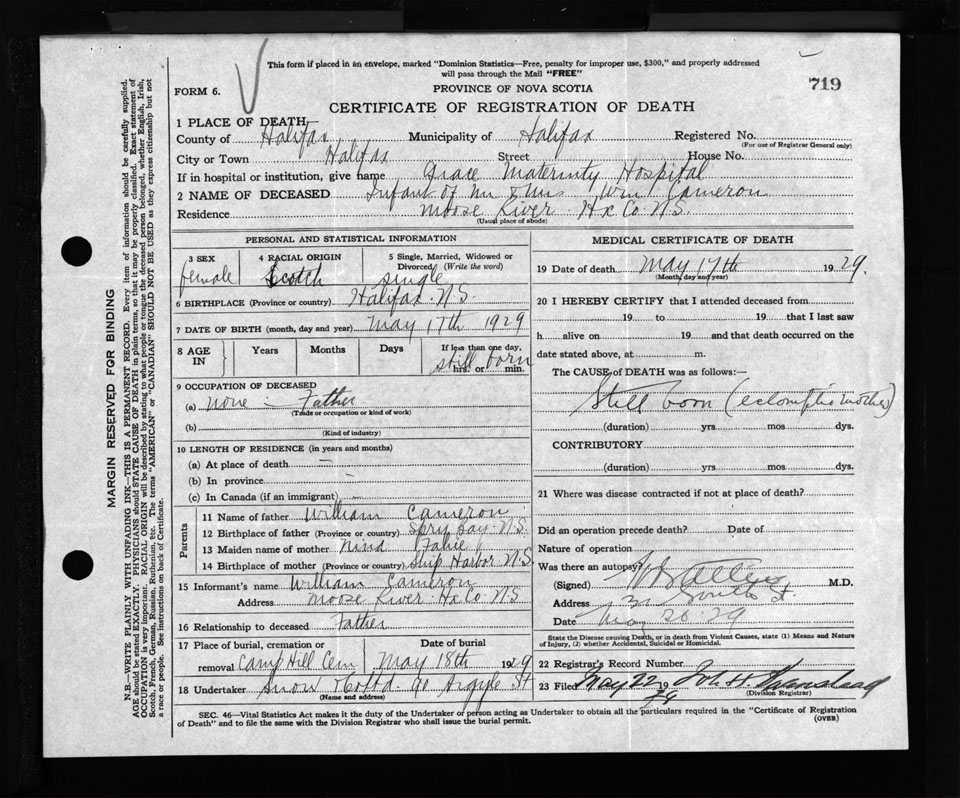 This form if placed in an envelope, marked "Dominion Statistics—Free, penalty for improper use, $300," and properly addressed
will pass through the Mail "FREE"
719
FORM 6.
PROVINCE OF NOVA SCOTIA
CERTIFICATE OF REGISTRATION OF DEATH
1 PLACE OF DEATH
County of Halifax Municipality of Halifax Registered No.
(For use of Registrar General only)
City or Town Halifax Street House No.
If in hospital or institution, give name Grace Maternity Hospital
2 NAME OF DECEASED Infant of Mr & Mrs Wm Cameron
Residence Moose River Hx Co N.S.
(Usual place of abode)
PERSONAL AND STATISTICAL INFORMATION
3 SEX 4 RACIAL ORIGIN 5 Single, Married, Widowed or
Divorced (Write the word)
female Scotch single
6 BIRTHPLACE (Province or country) Halifax N.S.
7 DATE OF BIRTH (month, day and year) May 17th 1929
8 AGE IN Years Months Days If less than one day,
still born
hrs. or min.
9 OCCUPATION OF DECEASED
(a) none – Father
(Trade or occupation or kind of work)
(b)
(Kind of industry)
10 LENGTH OF RESIDENCE (in years and months)
(a) At place of death —
(b) In province —
(c) In Canada (if an immigrant) —
Parents
11 Name of father William Cameron
12 Birthplace of father (Province or country) Spry Bay N.S.
13 Maiden name of mother Nina
14 Birthplace of mother (Province or country) Ship Harbor N.S.
15 Informant's name William Cameron
Address Moose River Hx Co N.S
16 Relationship to deceased Father
17 Place of burial, cremation or Date of burial
removal Camp Hill Cem May 18th 1929
18 Undertaker Snow & Co Ltd. 90 Argyle St
(Name and address)
MEDICAL CERTIFICATE OF DEATH
19 Date of death May 17th 1929.
(Month, day and year)
20 I HEREBY CERTIFY that I attended deceased from
19 to 19 that I last saw
h alive on 19 and that death occurred on the
date stated above, at m.
The CAUSE of DEATH was as follows:—
Still born (eclamptic mother)
(duration) yrs. mos. dys.
CONTRIBUTORY
(duration) yrs. mos. dys.
21 Where was disease contracted if not at place of death?
Did an operation precede death? Date of
Nature of operation
Was there an autopsy?
(Signed) M.D.
Address South St.
Date May 20. 29
State the Disease causing Death, or in death from Violent Causes, state (1) Means and Nature
of Injury, (2) whether Accidental, Suicidal or Homicidal.
22 Registrar's Record Number
23 Filed May 22 19 29 John H.
(Division Registrar)
SEC. 46—Vital Statistics Act makes it the duty of the Undertaker or person acting as Undertaker to obtain all the particulars required in the "Certificate of Registration
of Death" and to file the same with the Division Registrar who shall issue the burial permit.
(OVER)
MARGIN RESERVED FOR BINDING
N.B.—WRITE PLAINLY WITH UNFADING INK—THIS IS A PERMANENT RECORD. Every item of information should be carefully supplied.
AGE should be stated EXACTLY. PHYSICIANS should STATE CAUSE OF DEATH in plain terms, so that it may be properly classified. Exact statement of
OCCUPATION is very important. RACIAL ORIGIN will be described by stating to what people or tongue the deceased person belonged, whether English, Irish,
Scotch, French, German, Russian, Ruthenian, etc. The terms "AMERICAN" or "CANADIAN" SHOULD NOT BE USED as they express citizenship but not
a race or people. See instructions on back of Certificate.